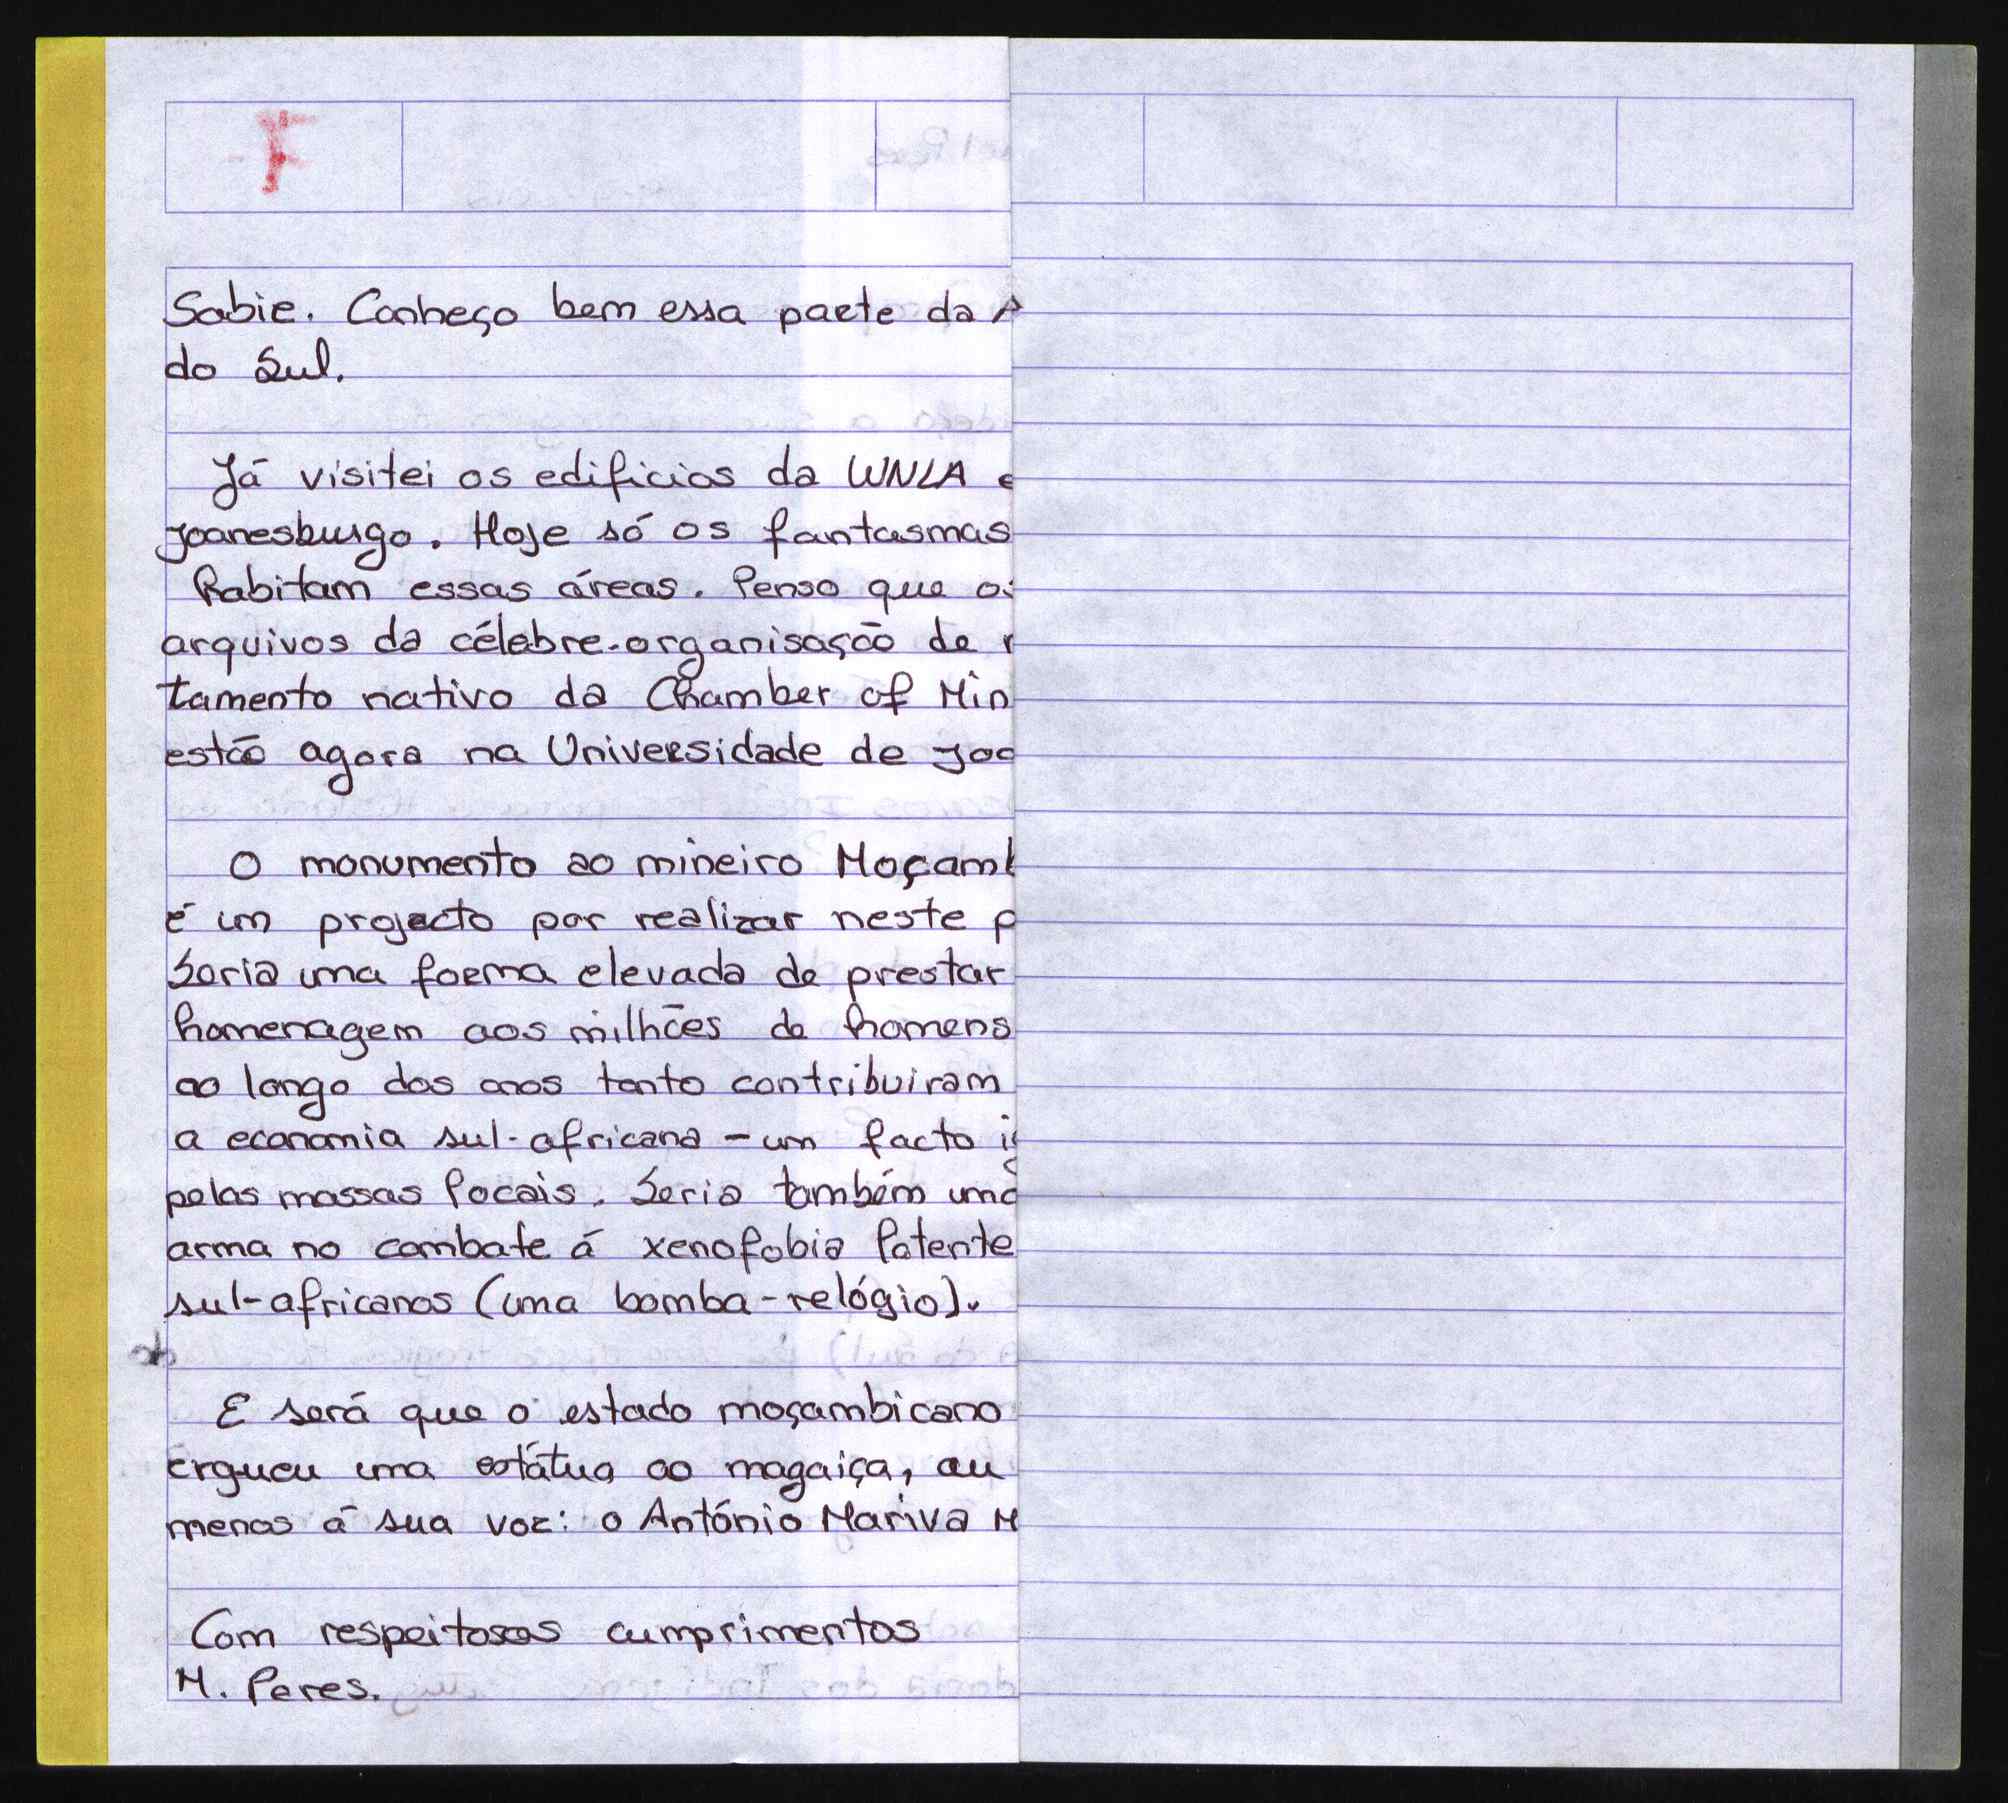 F
Sabie. Conheço bem essa parte da A
do Sul.
Já visitei os edificios da WNLA e
Joanesburgo. Hoje só os fantasmas
habitam essas áreas. Penso que os
arquivos da célebre organisação de r
tamento nativo da Chamber of Min
estão agora na Universidade de Joa
O monumento ao mineiro Moçamb
é um projecto por realizar neste p
Seria uma forma elevada de prestar
homenagem aos milhões de homens
ao longo dos anos tanto contribuiram
a economia sul-africana - um facto ig
pelas massas locais. Seria também uma
arma no combate á xenofobia latente
sul-africanos (uma bomba-relógio).
E será que o estado moçambicano
ergueu uma estátua ao magaiça, ou
menos á sua voz: o António Mariva M
Com respeitosos cumprimentos
M. Peres.